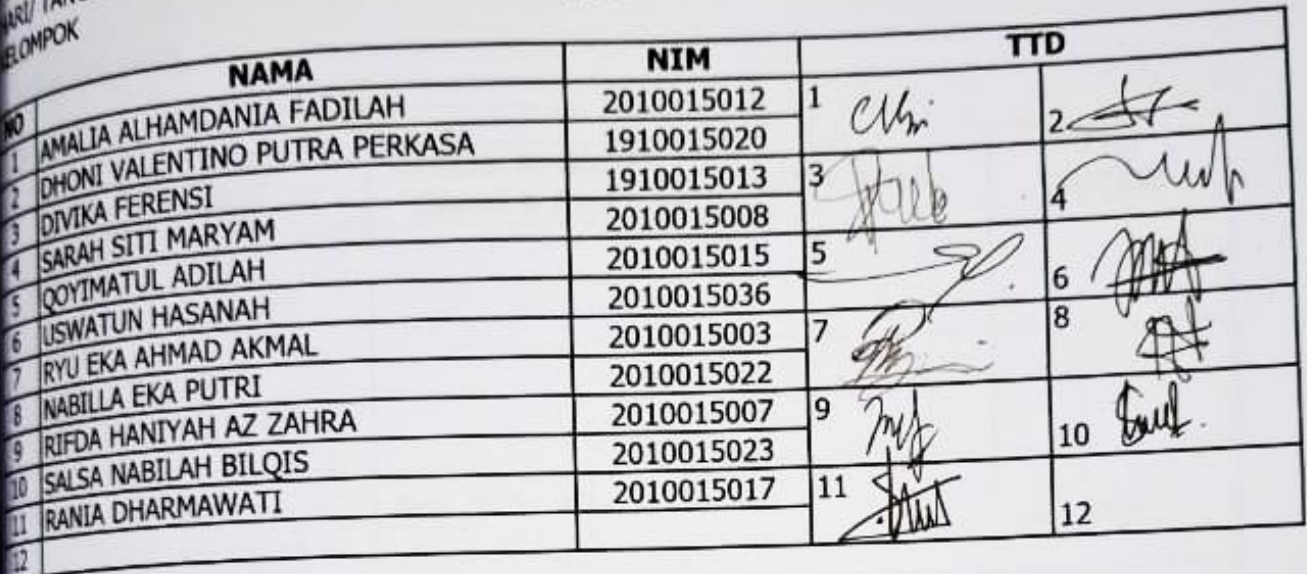 HARI/
KELOMPOK
NO NAMA NIM TTD
1 AMALIA ALHAMDANIA FADILAH 2010015012 1
2 DHONI VALENTINO PUTRA PERKASA 1910015020 2
3 DIVIKA FERENSI 1910015013 3
4 SARAH SITI MARYAM 2010015008 4
5 QOYIMATUL ADILAH 2010015015 5
6 USWATUN HASANAH 2010015036 6
7 RYU EKA AHMAD AKMAL 2010015003 7
8 NABILLA EKA PUTRI 2010015022 8
9 RIFDA HANIYAH AZ ZAHRA 2010015007 9
10 SALSA NABILAH BILQIS 2010015023 10
11 RANIA DHARMAWATI 2010015017 11
12 12